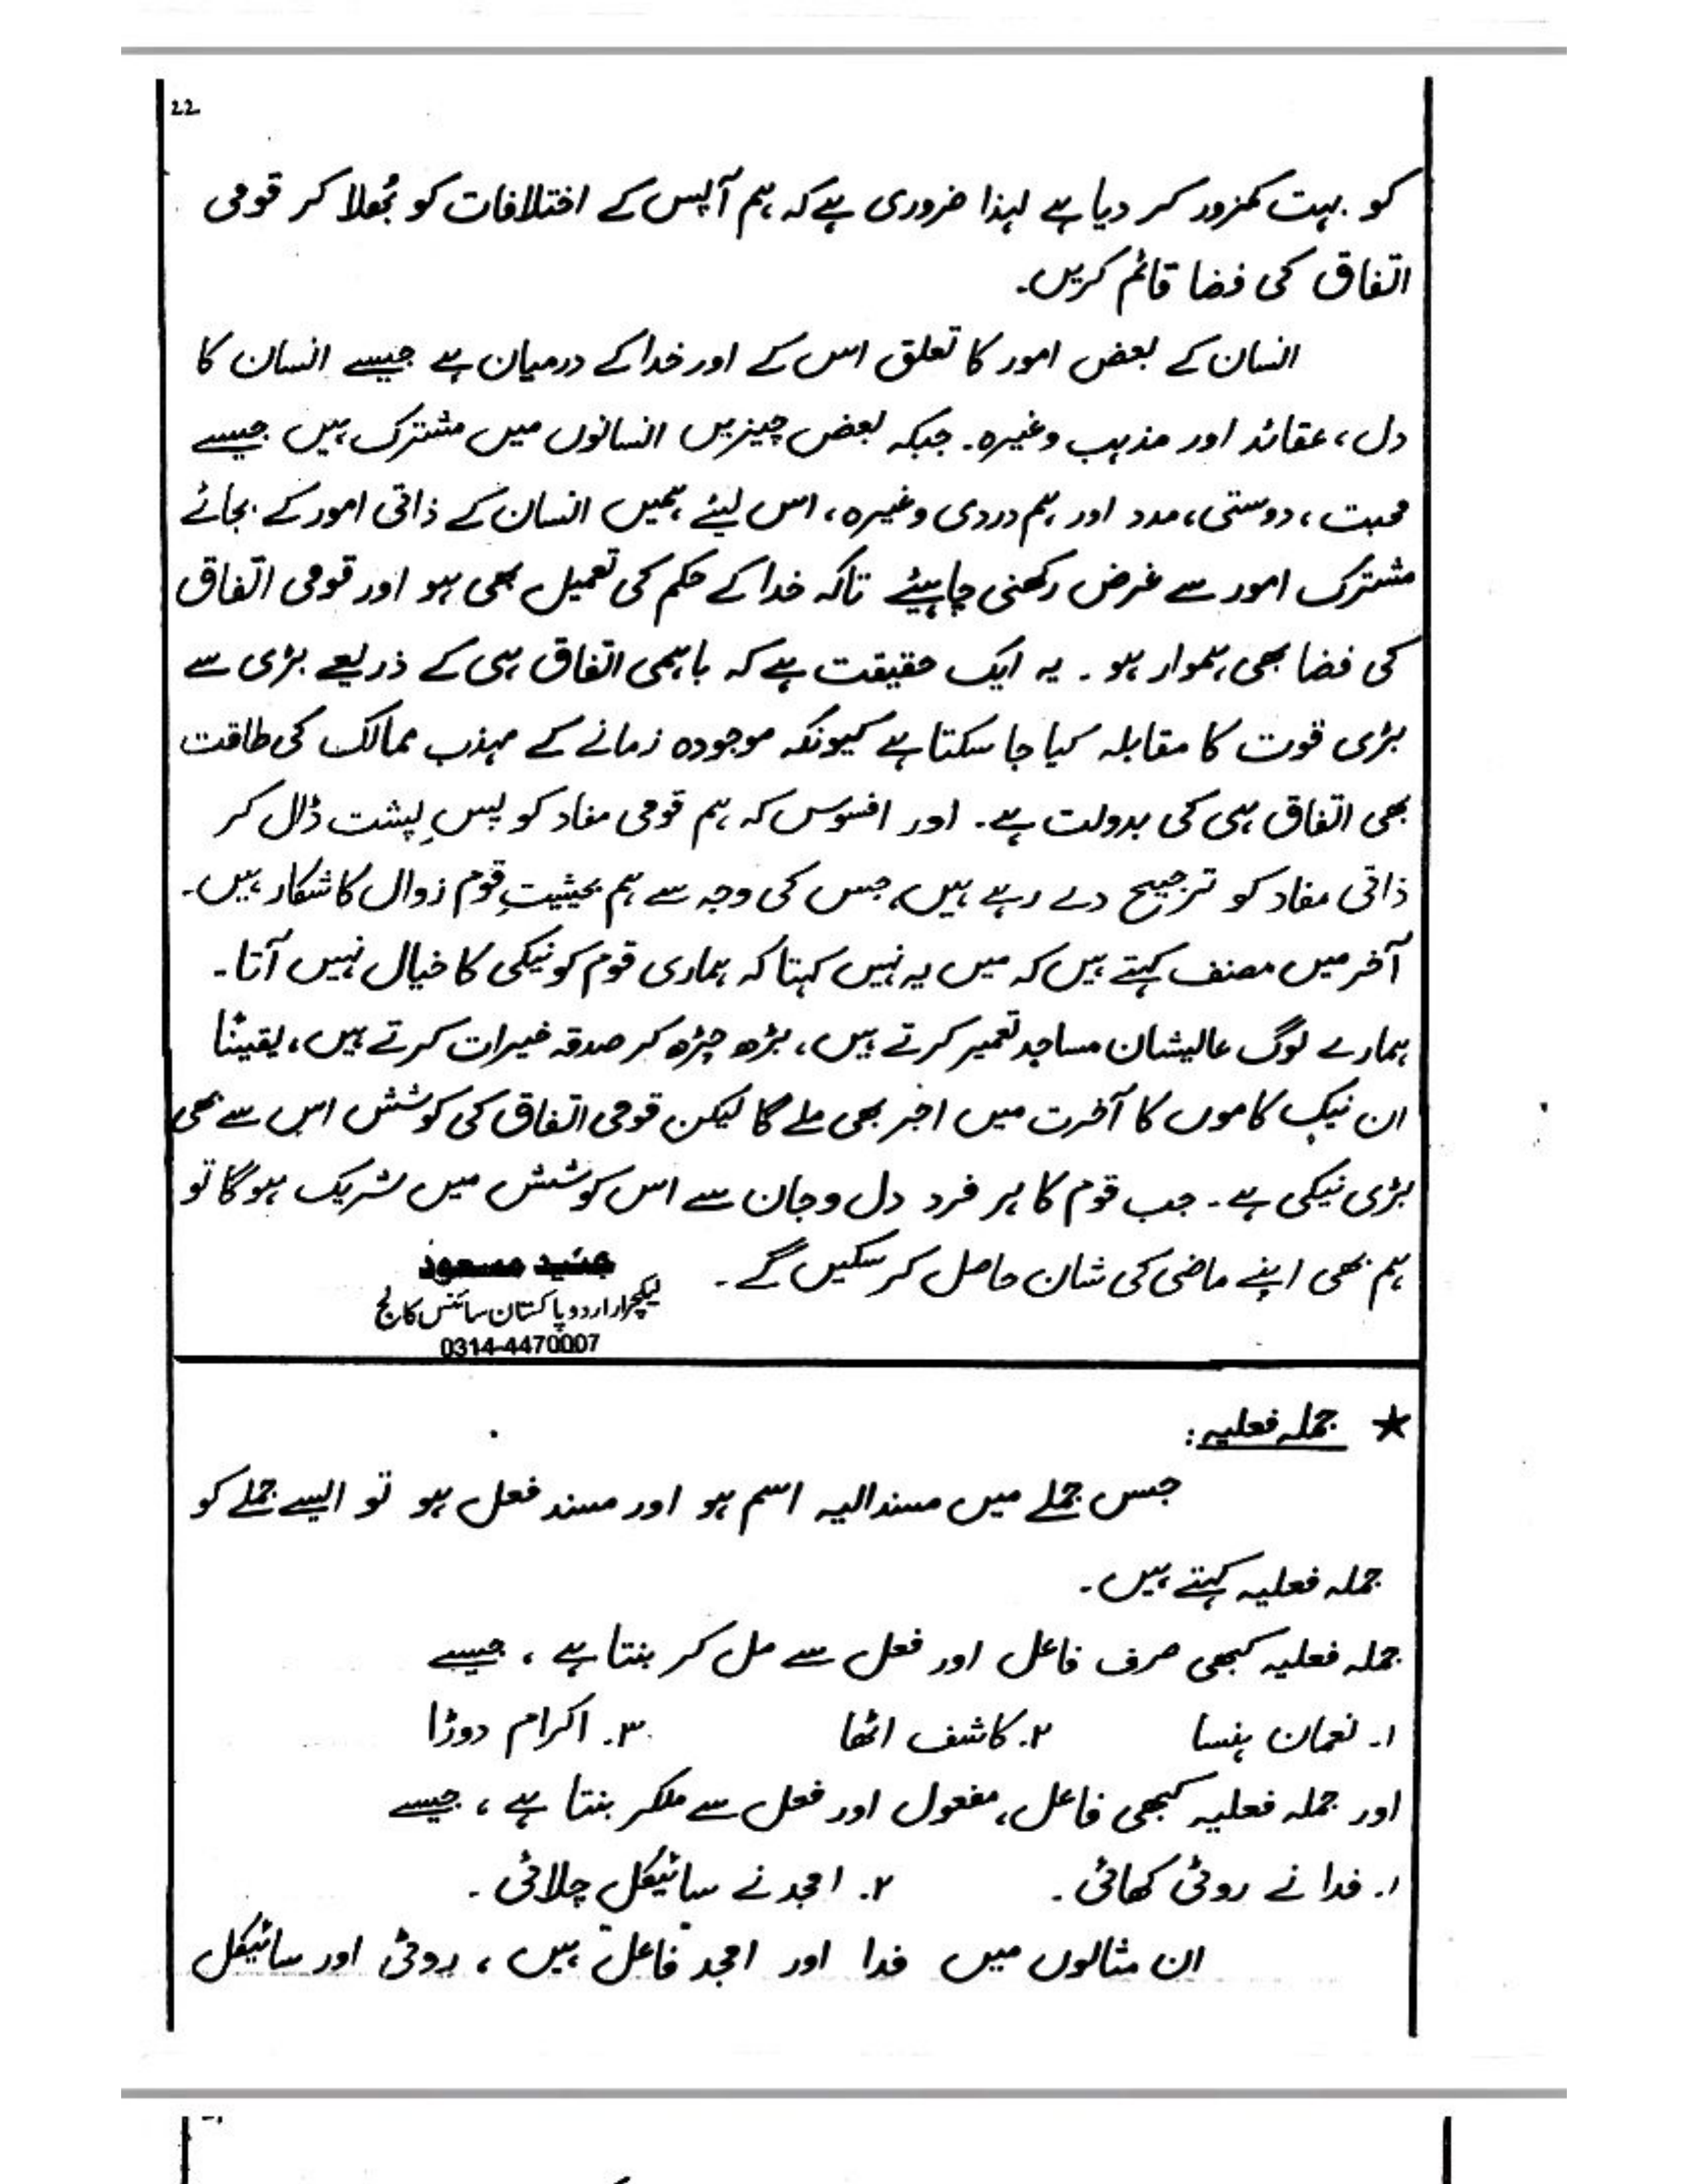 22
کو بہت کمزور کر دیا ہے لہذا ضروری ہے کہ ہم آپس کے اختلافات کو بُھلا کر قومی
اتفاق کی فضا قائم کریں۔
انسان کے بعض امور کا تعلق اس کے اور خدا کے درمیان ہے جیسے انسان کا
دل، عقائد اور مذہب وغیرہ۔ جبکہ بعض چیزیں انسانوں میں مشترک ہیں جیسے
محبت، دوستی، مدد اور ہم دردی وغیرہ، اس لیئے ہمیں انسان کے ذاتی امور کے بجائے
مشترک امور سے غرض رکھنی چاہیئے تاکہ خدا کے حکم کی تعمیل بھی ہو اور قومی اتفاق
کی فضا بھی ہموار ہو۔ یہ ایک حقیقت ہے کہ باہمی اتفاق ہی کے ذریعے بڑی سے
بڑی قوت کا مقابلہ کیا جا سکتا ہے کیونکہ موجودہ زمانے کے مہذب ممالک کی طاقت
بھی اتفاق ہی کی بدولت ہے۔ اور افسوس کہ ہم قومی مفاد کو پسِ پشت ڈال کر
ذاتی مفاد کو ترجیح دے رہے ہیں، جس کی وجہ سے ہم بحیثیتِ قوم زوال کا شکار ہیں۔
آخر میں مصنف کہتے ہیں کہ میں یہ نہیں کہتا کہ ہماری قوم کو نیکی کا خیال نہیں آتا۔
ہمارے لوگ عالیشان مساجد تعمیر کرتے ہیں، بڑھ چڑھ کر صدقہ خیرات کرتے ہیں، یقینًا
ان نیک کاموں کا آخرت میں اجر بھی ملے گا لیکن قومی اتفاق کی کوشش اس سے بھی
بڑی نیکی ہے۔ جب قوم کا ہر فرد دل و جان سے اس کوشش میں شریک ہو گا تو
ہم بھی اپنے ماضی کی شان حاصل کر سکیں گے۔
جنید مسعود
لیکچرار اردو پاکستان سائنس کالج
0314-4470007
★ جملہ فعلیہ:
جس جملے میں مسندالیہ اسم ہو اور مسند فعل ہو تو ایسے جملے کو
جملہ فعلیہ کہتے ہیں۔
جملہ فعلیہ کبھی صرف فاعل اور فعل سے مل کر بنتا ہے، جیسے
۱۔ نعمان ہنسا ۲۔ کاشف اٹھا ۳۔ اکرام دوڑا
اور جملہ فعلیہ کبھی فاعل، مفعول اور فعل سے ملکر بنتا ہے، جیسے
۱۔ فدا نے روٹی کھائی۔ ۲۔ امجد نے سائیکل چلائی۔
ان مثالوں میں فدا اور امجد فاعل ہیں، روٹی اور سائیکل